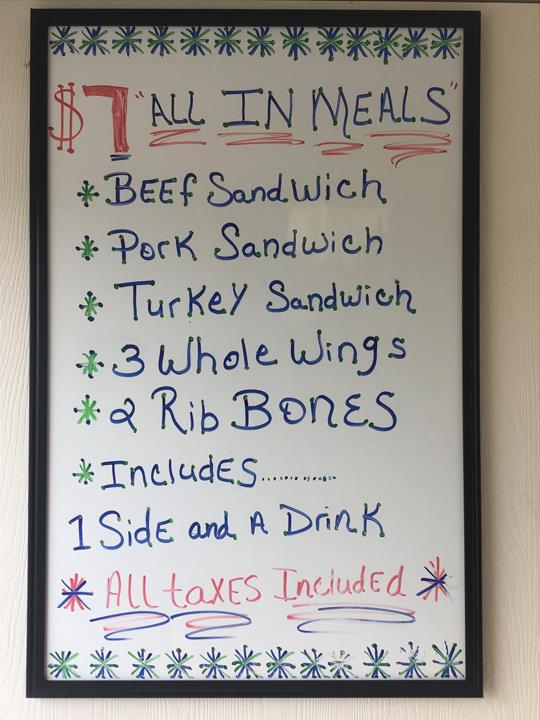 $7 "ALL IN MEALS"
* BEEf SandWich
* Pork Sandwich
* Turkey Sandwich
* 3 Whole Wings
* 2 Rib BONES
* IncludES............
1 SidE and A DrinK
* All taxES IncludEd *